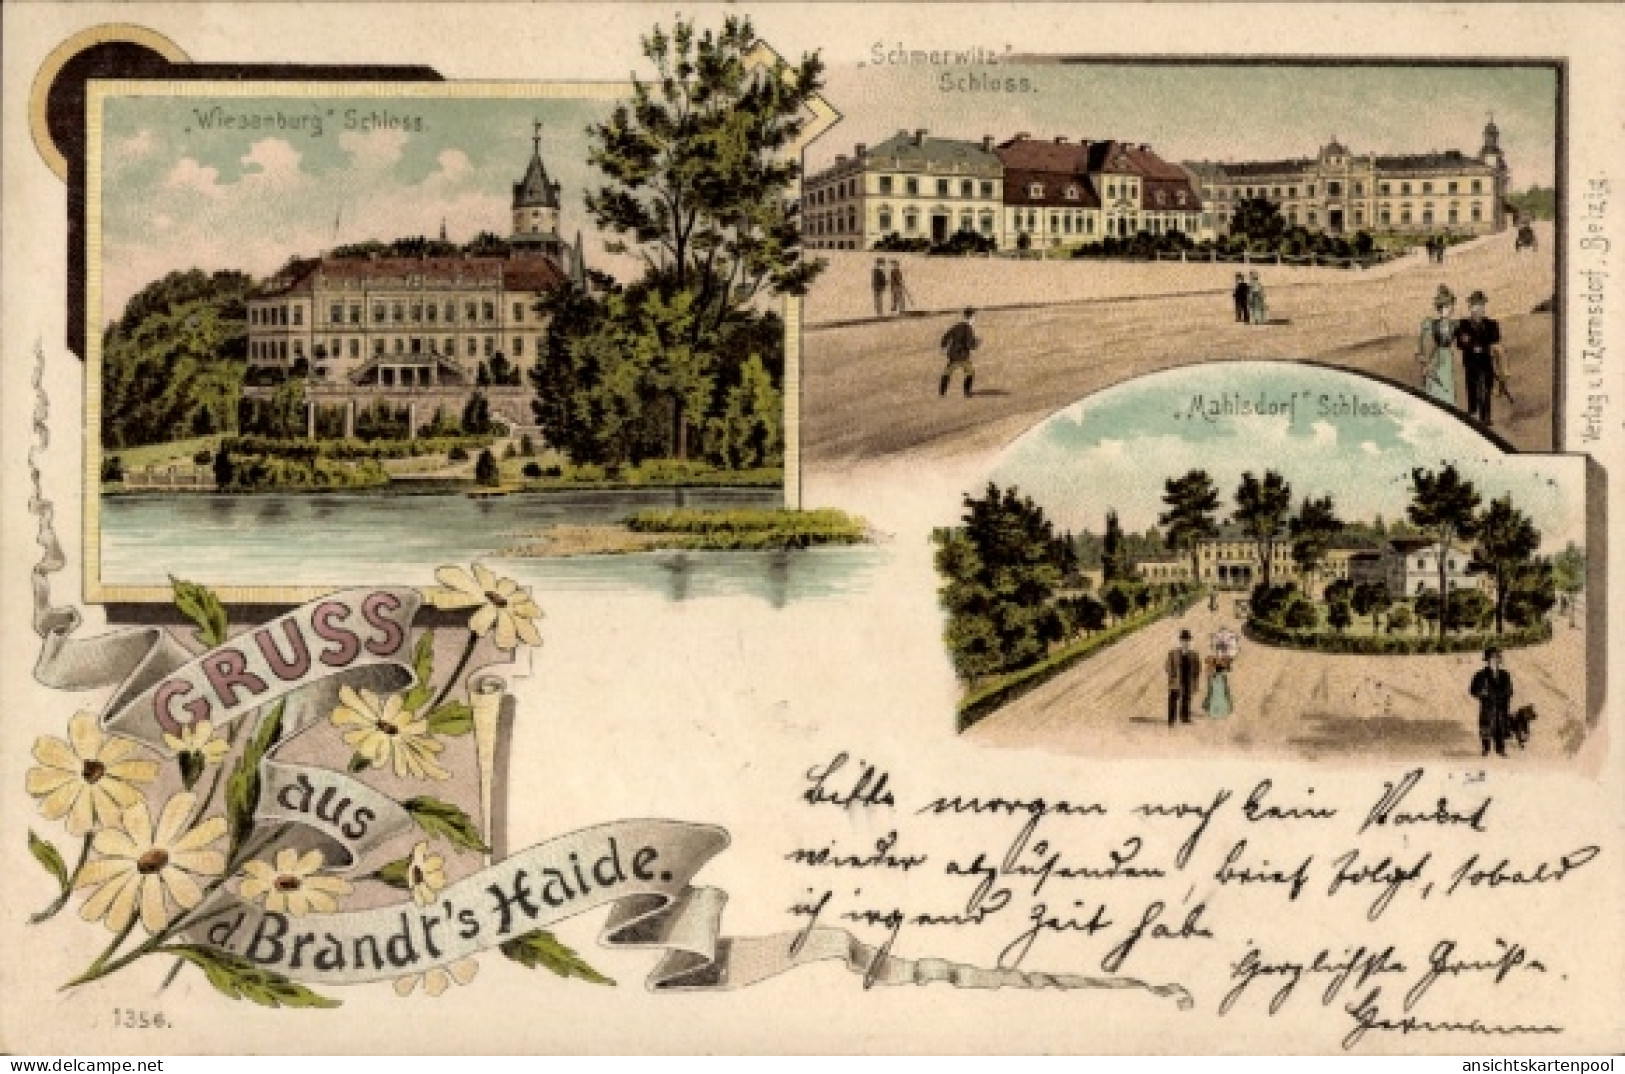 „Wiesenburg" Schloss.
„Schmerwitz"
Schloss.
„Mahlsdorf" Schloss.
Verlag v. H. Zernsdorf, Belzig.
GRUSS
aus
d. Brandt's Haide.
Bitte morgen noch kein Packet
wieder abzusenden, Brief folgt, sobald
ich irgend Zeit habe
Herzlichste Grüße.
Hermann
1356.
ansichtskartenpool